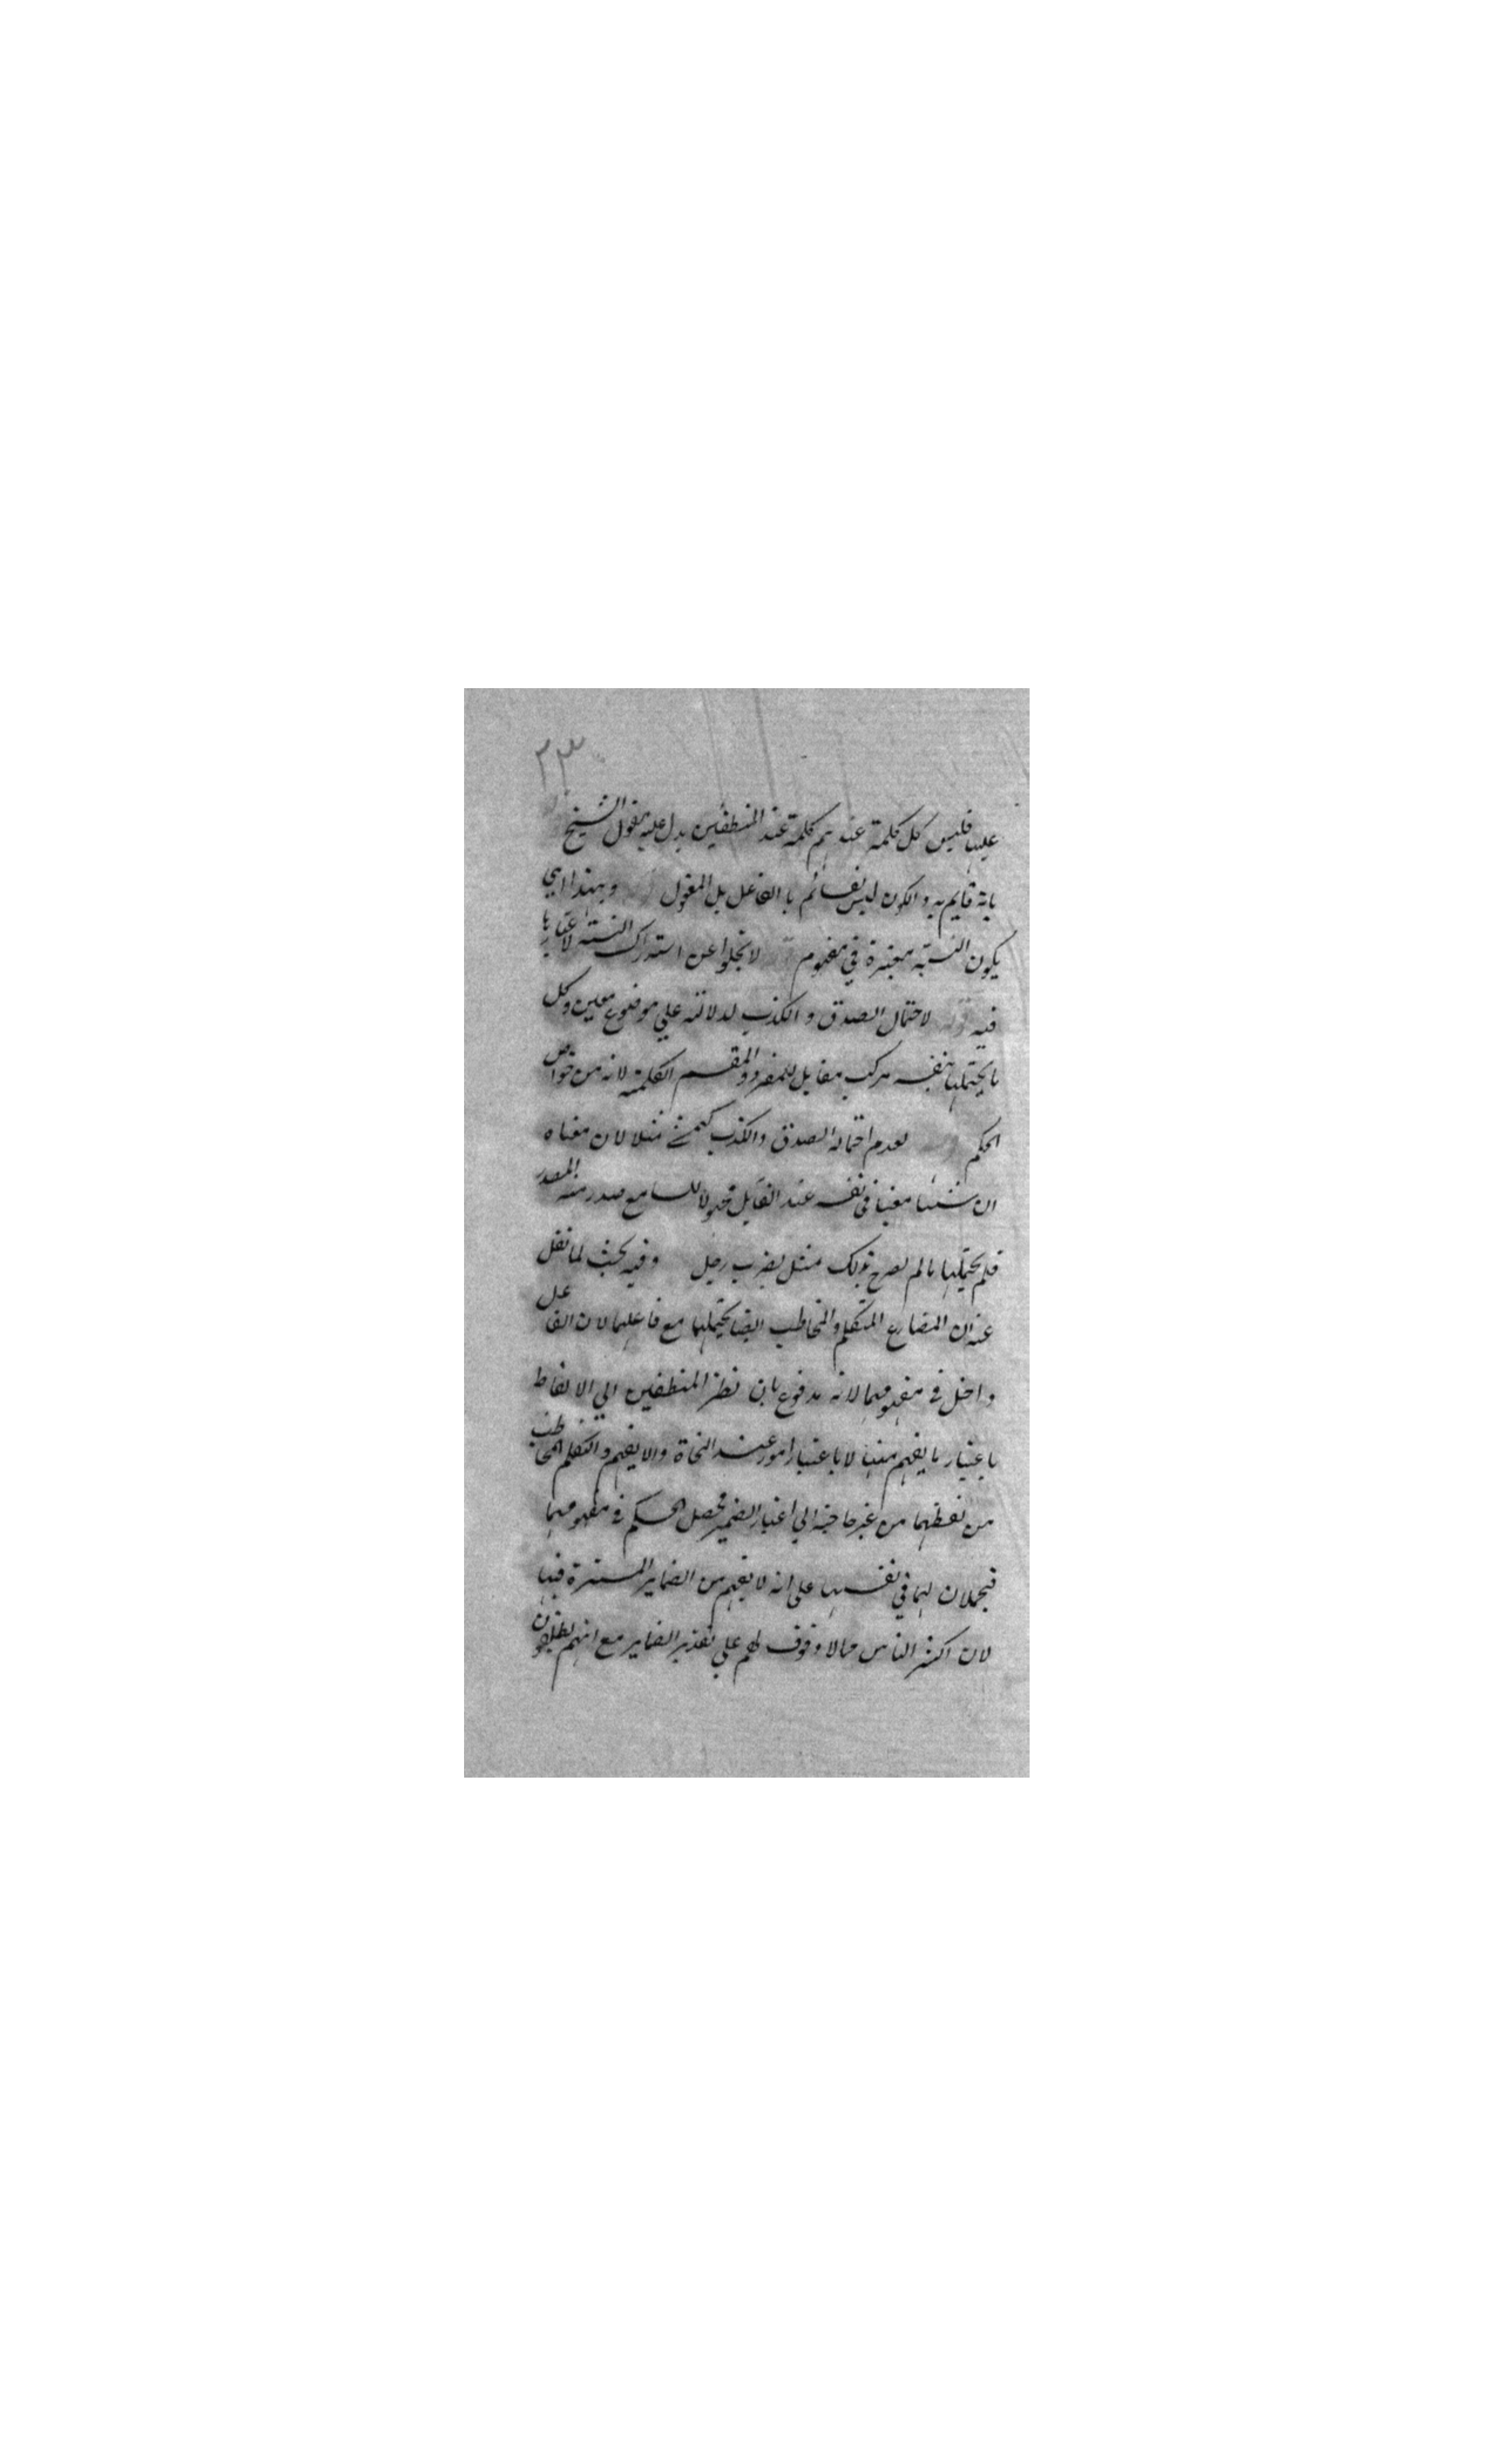 ٢٣
عليها فليس كل كلمة عندهم كلمة عند المنطقيين يدل عليه بقول الشيخ
بانه قايم به والكون ليس بقائم بالفاعل بل المفعول وبهذا
يكون النسبة معتبرة في مفهوم لا يخلوا عن استدراك النسبة لاعتبارها
فيه قوله لاحتمال الصدق والكذب لدلالته علي موضوع معين وكل
ما يحتملها بنفسه مركب مقابل للمفرد والمقسم الكلمة لانه من خواص
الحكم لعدم احتماله الصدق والكذب كيمشي مثلا لان معناه
ان شيئا معينا في نفسه عند القايل مجهولا للسامع صدر منه المصدر
فلم يحتملها ما لم يصرح بذلك مثل يضرب رجل وفيه بحث لما نقل
عنه ان المضارع المتكلم والمخاطب ايضا يحتملها مع فاعلهما لان الفاعل
داخل في مفهومهما لانه مدفوع بان نظر المنطقيين الي الالفاظ
باعتبار ما يفهم منها لا باعتبار امور عند النحاة والا يفهم والتكلم المخاطب
من لفظهما من غير حاجة الي اعتبار الضمير فحصل الحكم في مفهومهما
فيحملان لهما في نفسهما علي انه لا يفهم من الضماير المستترة فيها
لان اكثر الناس مما لا وقوف لهم علي تقدير الضماير مع انهم يطلقون